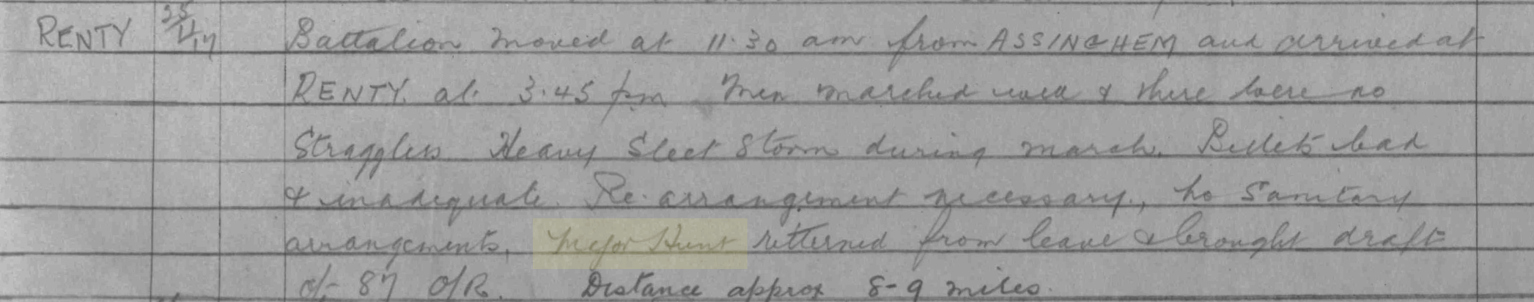 RENTY 25/11/17 Battalion moved at 11.30 am from ASSINGHEM and arrived at
RENTY. at. 3.45 pm Men marched well & there were no
Stragglers Heavy Sleet Storm during march. Billets bad
& inadequate. Re-arrangement necessary, no Sanitary
arrangements. Major Hunt returned from leave & brought draft
of 87 O/R. Distance approx 8-9 miles.